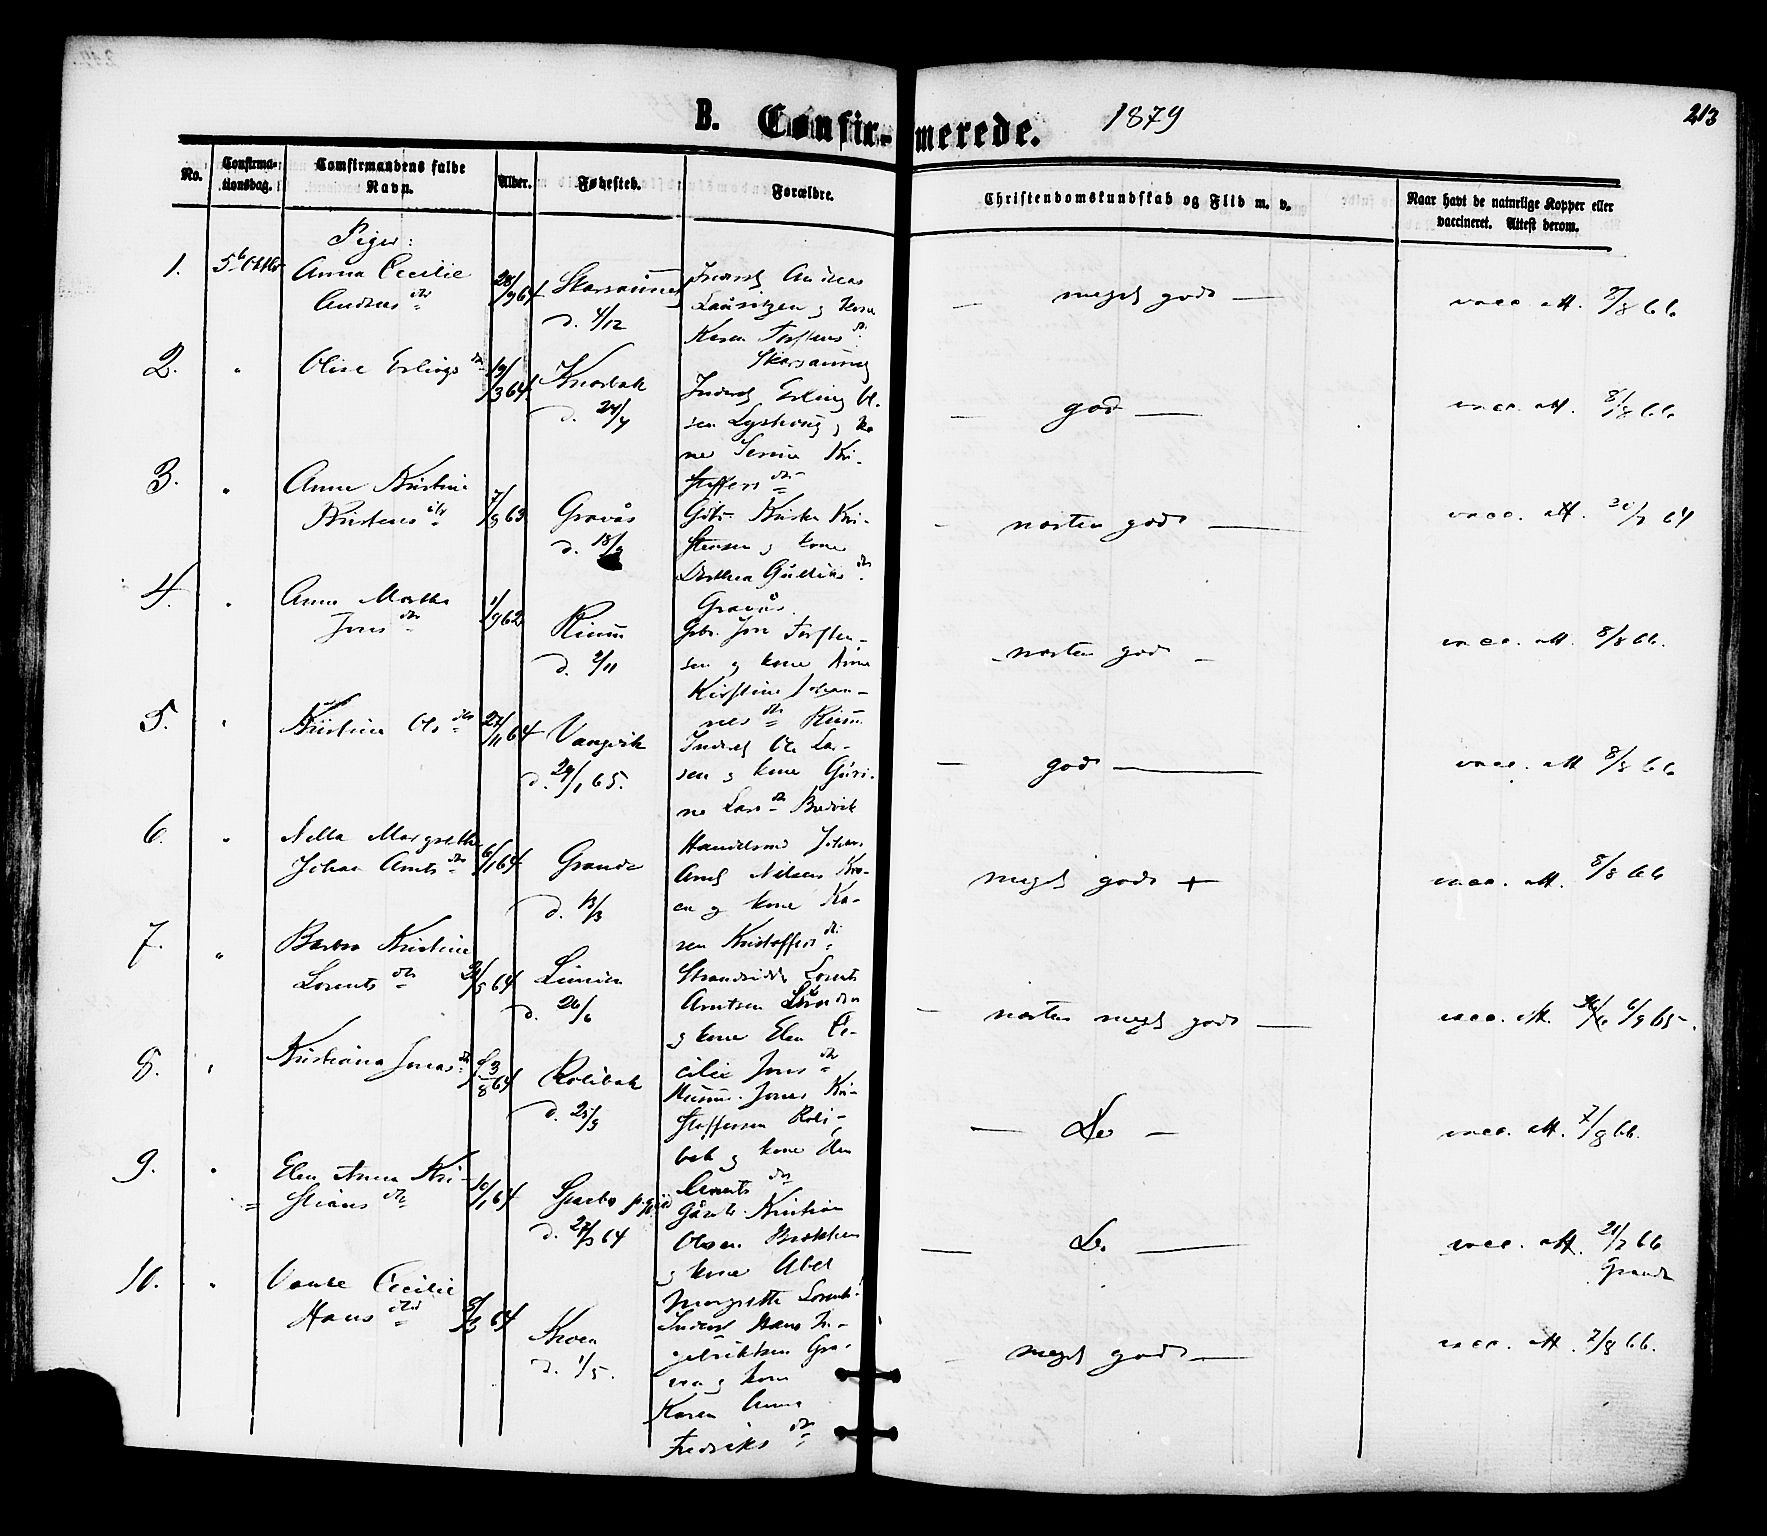 B. Confirmerede. 1879
213
No.
Confirmationsdag.
Comfirmandens fulde Navn.
Alder.
Fødested.
Forældre.
Christendomskundskab og Flid m. v.
Naar havt de naturlige Kopper eller vaccineret. Attest derom.
Piger:
1.
5te Oktbr
Anna Cecilie
Andreas dtr
28/9 64
Skarsaunet
d. 4/12
Indred Andreas
Lauritzen og kone
Karen Torstens dtr
Skarsaunet
— meget godt —
vacc. att. 7/8 66
2.
"
Olise Erlings dtr
19/3 64
Knarbak
d. 24/4
Inderst Erling Ol-
sen Lysthoug og ko
ne Serine Kri-
stoffers dtr
— god —
vacc. att. 8/8 66
3.
"
Anne Kristine
Kristens dtr
7/8 63
Gravås
d. 18/9
Gdbr. Kristen Kri-
stensen og kone
Dorthea Gulliks dtr
Gravås.
— næsten godt —
vacc. att. 64
4.
"
Anne Martha
Jons dtr
1/9 62
d. 2/11
Gbr. Jon Torsten-
sen og kone Anne
Kirstine Johan-
nes dtr
— næsten godt —
vacc. att. 8/8 66.
5.
"
Kristine Ols dtr
27/11 64
Vangvik
d. 29/1 65.
Inderst Ole Lar-
sen og kone Guri-
ne Lars dtr Bredvik
— godt —
vacc. att 8/8 66
6.
"
Nella Margrethe
Johan Arnts dtr
6/1 64
Grande
d. 13/3
Handelsmd Johan
Arnt Nilsen Kro-
en og kone Ka-
ren Kristoffers dtr
meget godt +
vacc. att. 8/8 66
7.
"
Barbro Kristine
Lorents dtr
64
d. 26/6
Strandsidder Lorents
Arntsen
og kone Elen Ce-
cilie Jons dtr
— næsten meget godt —
vacc. att. 6/9 65.
8.
"
Kristiana Jonas dtr
3/8 64
Rolibak
d. 25/9
Husmd. Jonas Kri-
stoffersen Roli-
bak og kone Elen
Lorents dtr
— Do —
vacc. att. 7/8 66.
9.
"
Elen Anna Kri-
stians dtr
10/1 64
Sparbo pgjld
d. 27/3 64
Gårdb. Kristian
Olsen
og kone Abel
Margrethe Lorents
— Do. —
vacc. att. 21/7 66
Grande
10.
"
Vanke Cecilie
Hans dtr
3/3 64
Kroen
d. 1/5.
Inderst Hans In-
gebriktsen Gra-
vaa og kone
Karen Anna
Fredriks dtr
— meget godt —
vacc. att. 2/8 66.